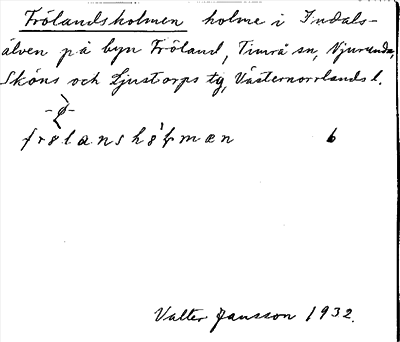 Frölandsholmen holme i Indals-
älven på byn Fröland, Timrå sn, Njurunda,
Sköns och Ljustorps tg, Västernorrlands l.
-ø-
frølanshòɫmæn 6
Valter Jansson 1932.